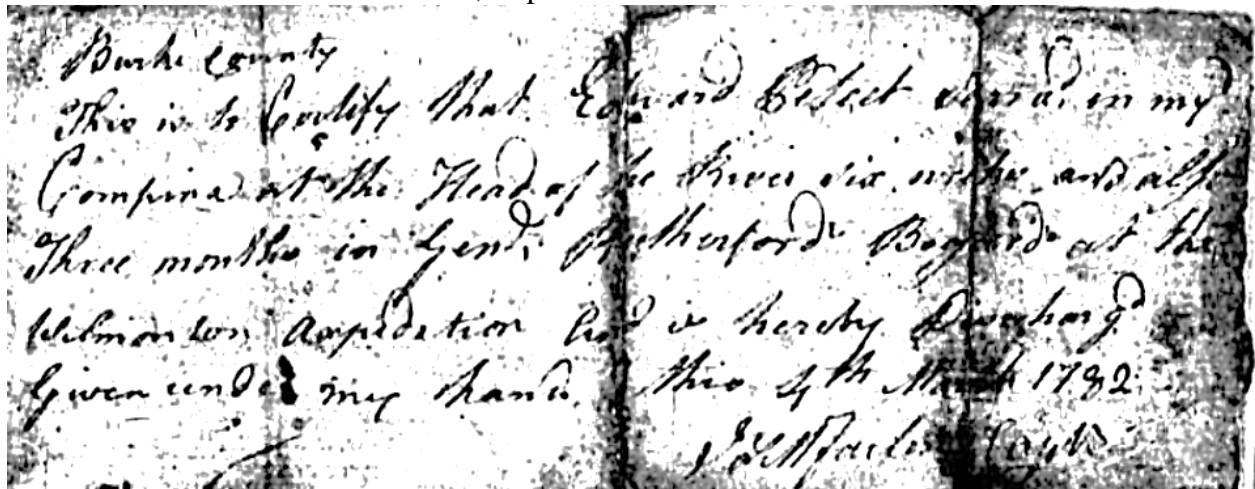 Burke County
This is to Certify that Edward Poteet Servd in my
Compina at the Head of the River six weeks and also
Three months in Genl. Rutherfords Brigard at the
Wilmonton Axpedation And is hereby Discharg'd
Given under my hand this 4th March 1782
Capt.